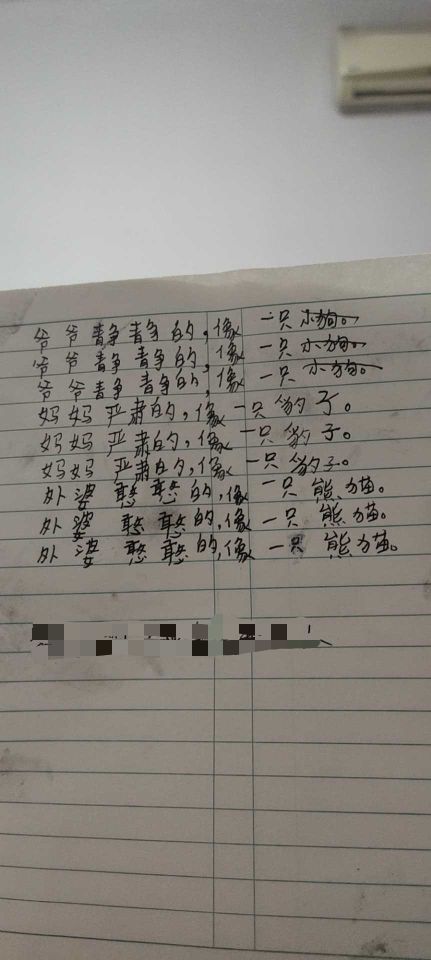 爷爷静静的,像一只小狗。
爷爷静静的,像一只小狗。
爷爷静静的,像一只小狗。
妈妈严肃的,像一只豹子。
妈妈严肃的,像一只豹子。
妈妈严肃的,像一只豹子。
外婆憨憨的,像一只熊猫。
外婆憨憨的,像一只熊猫。
外婆憨憨的,像一只熊猫。